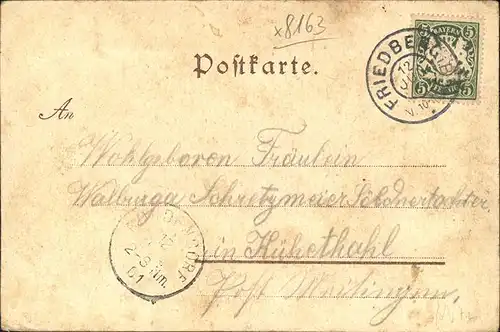 x8163
Postkarte.
FRIEDBERG
12
BAYERN
5 5
5 5
An
Wohlgeboren Fräulein
Walburga Schretzmeier Söldnertochter
in Hühethahl
Post Meitingen
12
2-3 Nm.
01